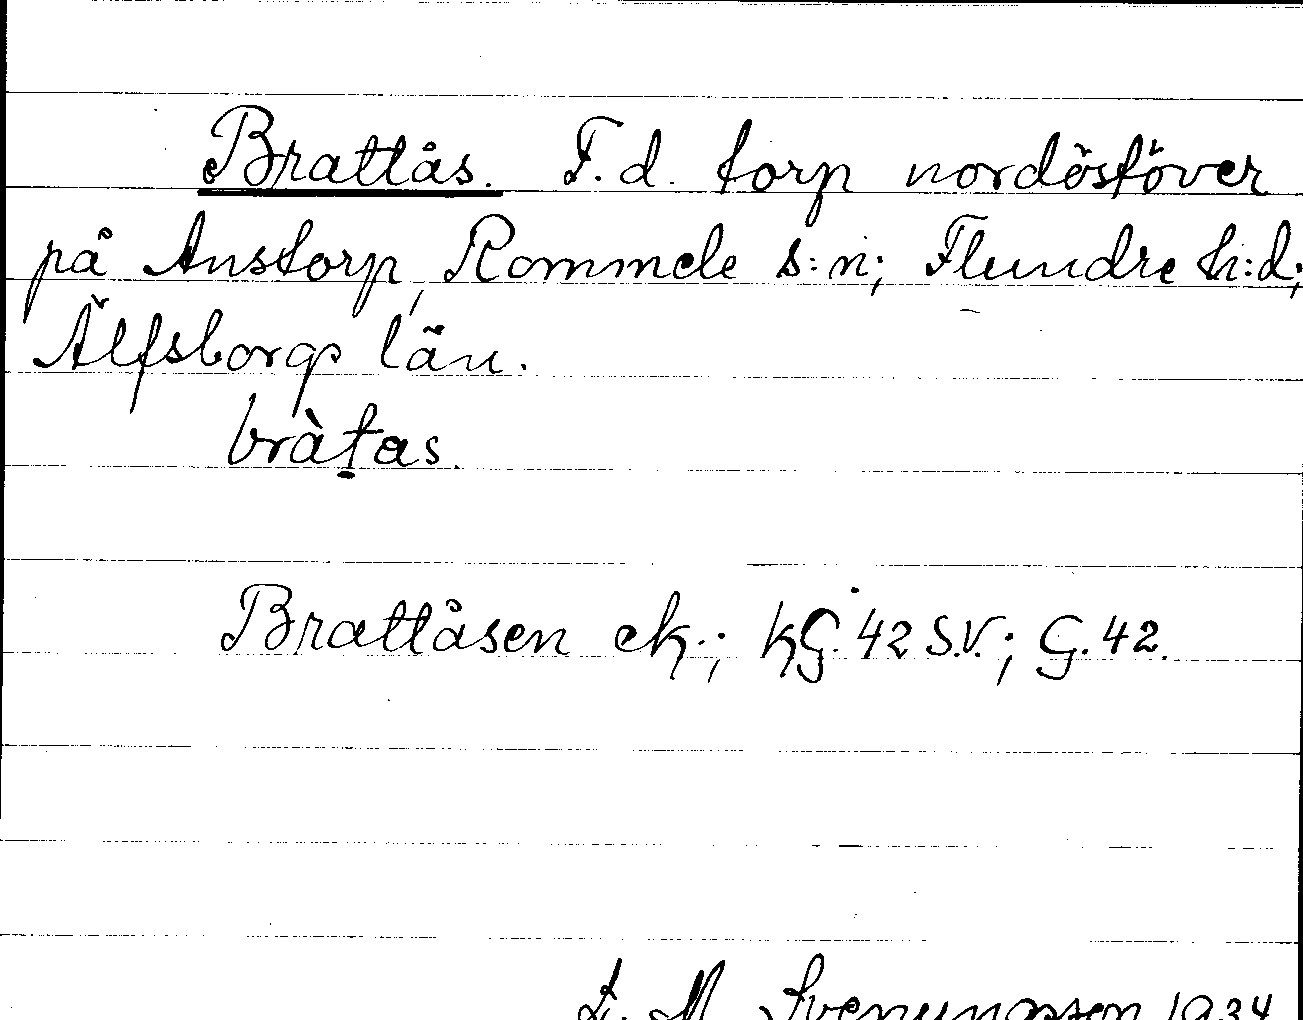 Brattås. F.d. torp nordöstöver
på Anstorp, Rommele s:n; Flundre h:d;
Älfsborgs län.
bràt̠as.
Brattåsen ek.; KG. 42 S.V.; G. 42.
F. M. Svenungsson 1934